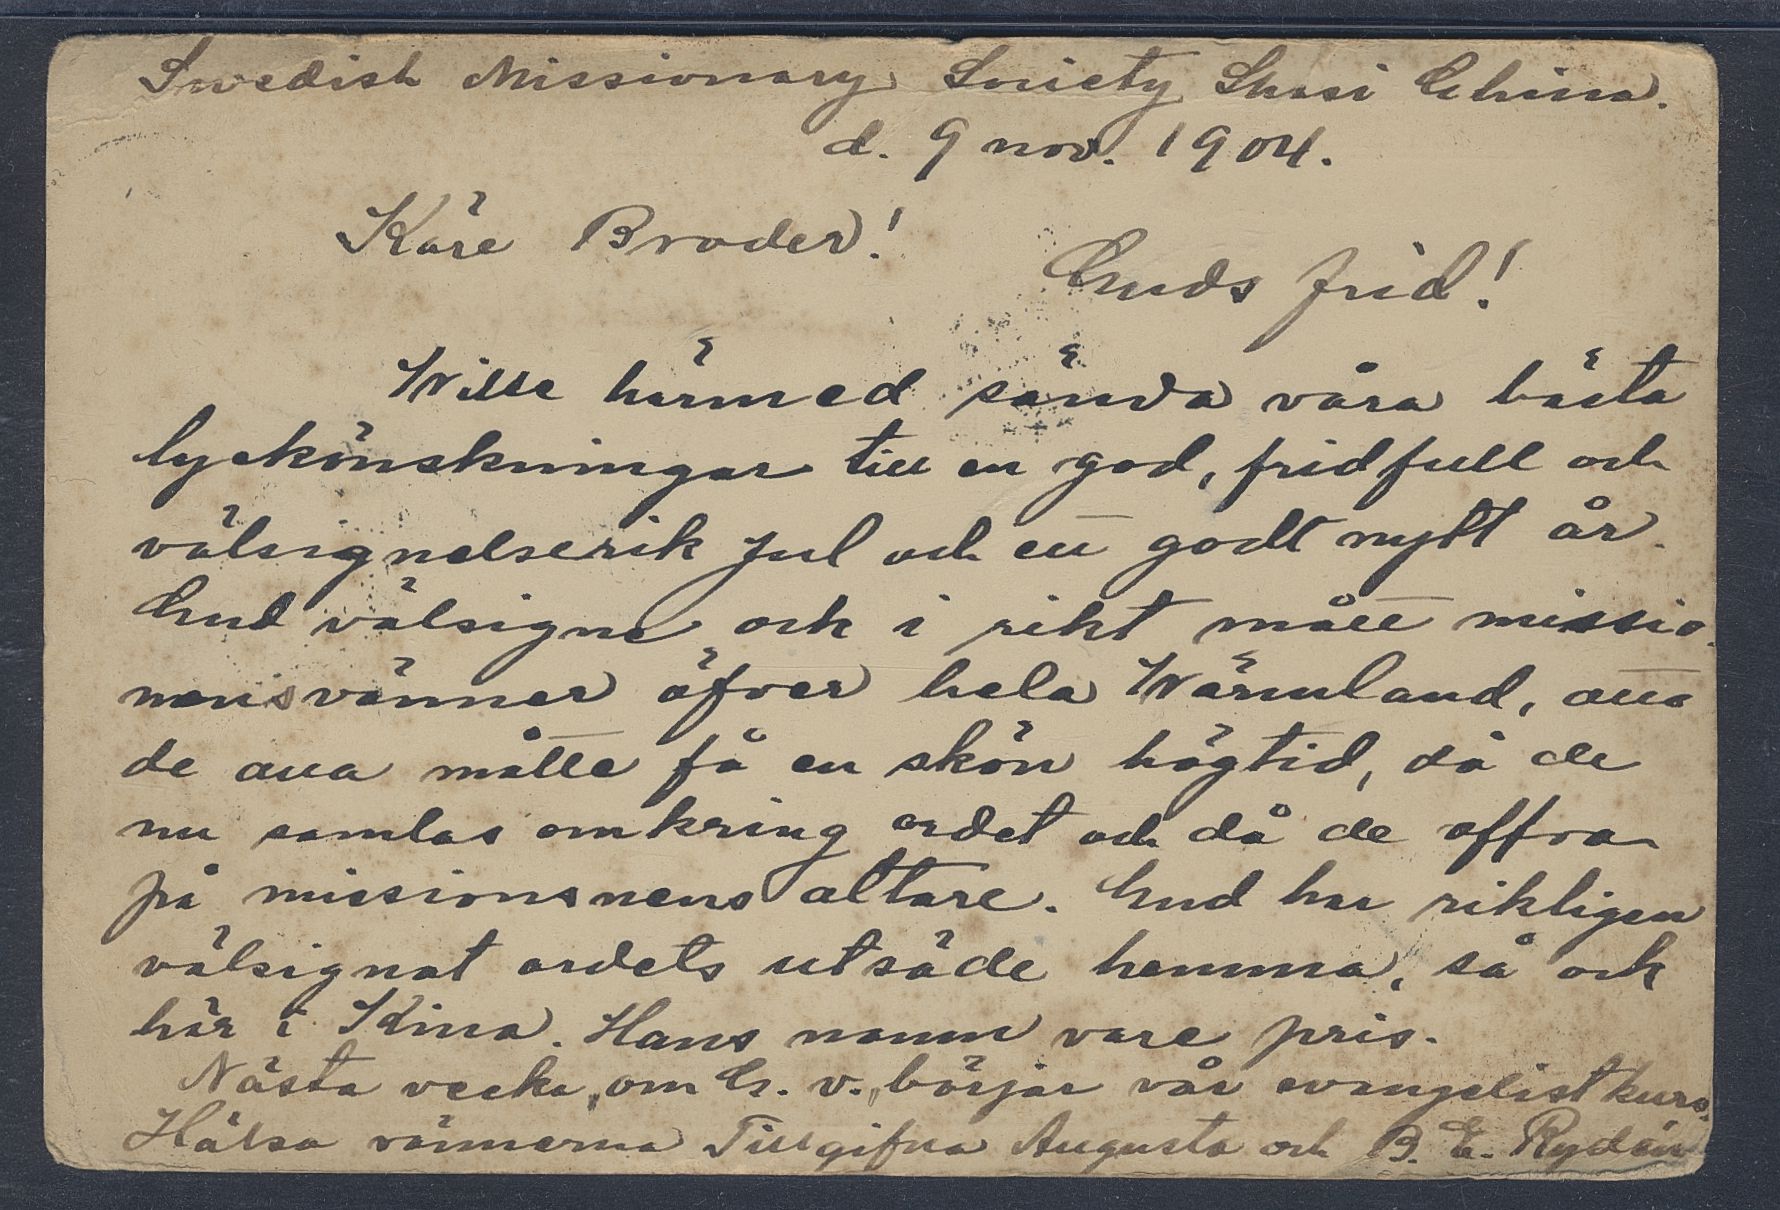 Swedish Missionary Society Shasi China.
d. 9 nov. 1904.
Käre Broder!
Guds frid!
Wille härmed sända våra bästa
lyckönskningar till en god, fridfull och
välsignelserik jul och ett godt nytt år.
Gud välsigne och i rikt mått missio-
nensvänner öfver hela Wärmland, att
de alla måtte få en skön högtid, då de
nu samlas omkring ordet och då de offra
på missionsnens altare. Gud har rikligen
välsignat ordets utsäde hemma, så ock
här i Kina. Hans namn vare pris.
Nästa vecka, om G. v., börjar vår evangelistkurs.
Hälsa vännerna Tillgifna Augusta och B. E. Rydén